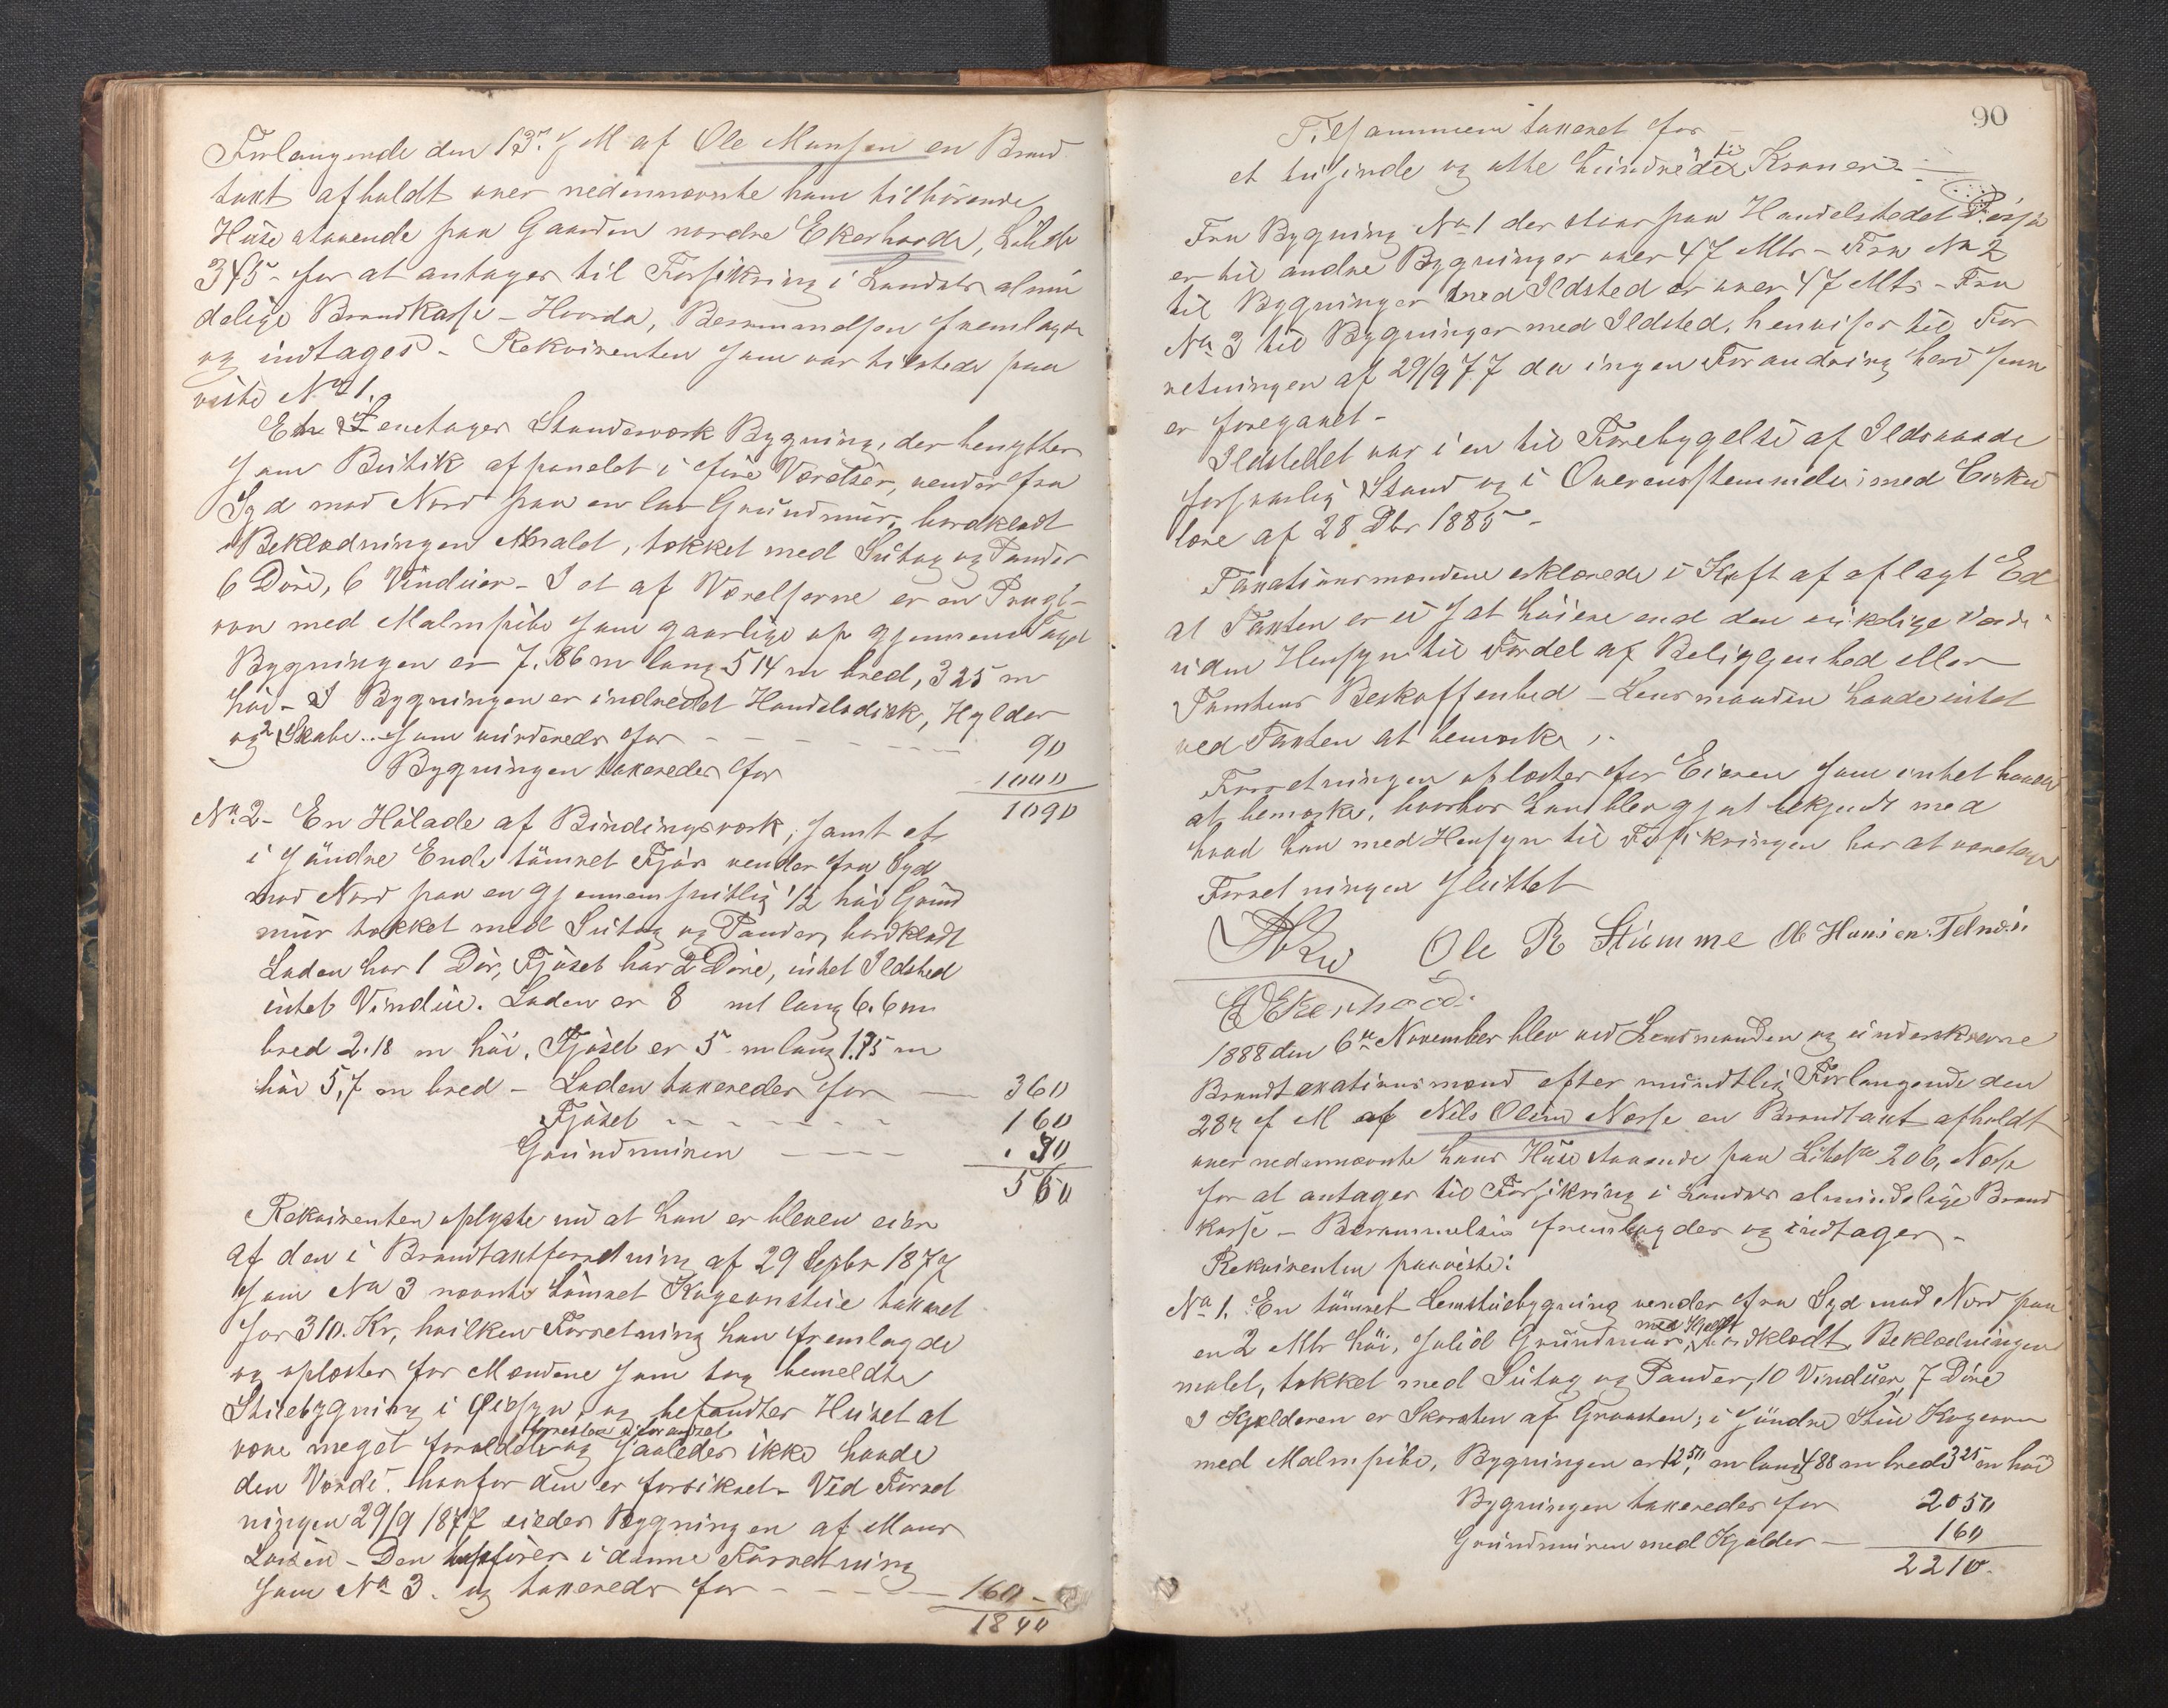 Forlangende den 13de f M af Ole Monsen en Brand
taxt afholdt over nedennævnte ham tilhørende
Huse staaende paa Gaarden nordre Ekerhovde, Løbe No
345 - for at antages til Forsikring i Landets almin
delige Brandkasse - Hvorda, Berammelsen fremlagdes
og indtages - Rekvirenten som var tilstede paa
viste No 1.
En Eenetages Standværk Bygning, der benyttes
som Butik afpanelet i fire Værelser, vender fra
Syd mod Nord paa en lav Grundmur, bordklædt
Beklædningen malet, tækket med Sutag og Pander
6 Døre, 6 Vinduer - I et af Værelserne er en Pragt-
ovn med Malmpibe som gaar lige op gjennem Taget
Bygningen er 7.86 m lang 514 m bred, 325 m
høi - I Bygningen er indredet Handelsdisk, Hylder
og 2 Skabe som vurderedes for - - - - 90
Bygningen taxeredes for 1000
1090
No 2 - En Hølade af Bindingsværk, samt et
i søndre Ende tømret Fjøs vender fra Syd
mod Nord paa en gjennemsnitlig 1/2 høi Grund
mur tækket med Sutag og Pander, bordklædt
Laden har 1 Dør, Fjøset har 2 Døre, intet Ildsted
intet Vindue. Laden er 8 m lang 6.6 m
bred 2.18 m høi. Fjøset er 5 m lang 1.75 m
høi 5,7 m bred - Laden taxeredes for — 360
Fjøset - - - - - 160
Grundmuren - - - - 30
560
Rekvirenten oplyste nu at han er bleven eier
af den i Brandtaxtforretning af 29 Septbr 1877
som No 3 nævnte tømret Kogeovnstue taxeret
for 310. Kr, hvilken Forretning han fremlagde
og oplæstes for Mændene som tog bemeldte
Stuebygning i Øiesyn, og befandtes Huset at
være meget forældet og saaledes ikke havde
den Værdi, hvorfor den er forsikret - Ved Forret
ningen 29/9 1877 eiedes Bygningen af Mons
Larsen - Den opføres i denne Forretning
som No 3. og taxeredes for - - - - 160 -
1810
90
Tilsammen taxeret for
et tusinde og otte hundrede ti Kroner -
Fra Bygning No 1 der staar paa Handelstedet
er til andre Bygninger over 47 Mtr - Fra No 2
til Bygninger med Ildsted er over 47 Mtr - Fra
No 3 til Bygninger med Ildsted, henvises til For
retningen af 29/9 77 da ingen Forandring heri
er foregaaet -
Ildstedet var i en til Forebyggelse af Ildsvaade
forsvarlig Stand og i Overensstemmelse med Cirku
lære af 28 Dbr 1885 -
Taxationsmændene erklærede i Kraft af aflagt Ed
at Taxten er ei sat høiere end den virkelige Værdi
uden Hensyn til Fordel af Beliggenhed eller
Tomtens Beskaffenhed - Lensmanden havde intet
ved Taxten at bemærke.
Forretningen oplæstes for Eieren som intet havde
at bemærke, hvorhos han blev gjort bekjendt med
hvad han med Hensyn til Forsikringen har at iagttage
Forretningen sluttet
Ole R Stumme
Ekerhovd
1888 den 6te November blev ved Lensmanden og underskrevne
Brandtaxationsmænd efter mundtlig Forlangende den
28de f M af Nils Olsen Nesse en Brandtaxt afholdt
over nedennævnte hans Huse staaende paa Løbe No 206, Nesse
for at antages til Forsikring i Landets almindelige Brand
kasse - Berammelsen fremlagdes og indtages -
Rekvirenten paaviste:
No 1. En tømret Lemstuebygning vender fra Syd mod Nord paa
en 2 Mtr høi, solid Grundmur med Kjelder, bordklædt, Beklædningen
malet, tækket med Sutag og Pander, 10 Vinduer, 7 Døre
I Kjelderen er Skorsten af Graasten; i søndre Stue Kogeovn
med Malmpibe, Bygningen er 12 50 m lang 488 m bred 325 m høi
Bygningen taxeredes for 2050
Grundmuren med Kjelder — 160
2210.